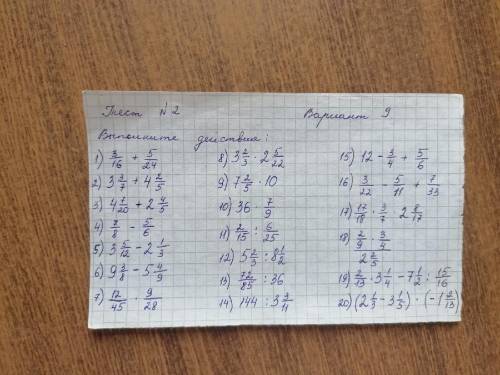 Тест №2 Вариант 9
Выполните действия:
1) 3/16 + 5/24
2) 3 3/7 + 4 2/5
3) 4 7/20 + 2 4/5
4) 7/8 - 5/6
5) 3 5/12 - 2 1/3
6) 9 3/8 - 5 4/9
7) 12/45 · 9/28
8) 3 2/3 · 2 5/22
9) 7 2/5 · 10
10) 36 · 7/9
11) 2/15 : 6/25
12) 5 2/3 : 8 1/2
13) 72/85 : 36
14) 144 : 3 3/11
15) 12 - 3/4 + 5/6
16) 3/22 - 5/11 + 7/33
17) 17/18 · 3/7 · 2 8/17
18) 2/9 · 3/4 · 2 2/5
19) 2/13 · 3 1/4 - 7 1/2 : 15/16
20) (2 1/3 - 3 1/5) · (-1 2/13)